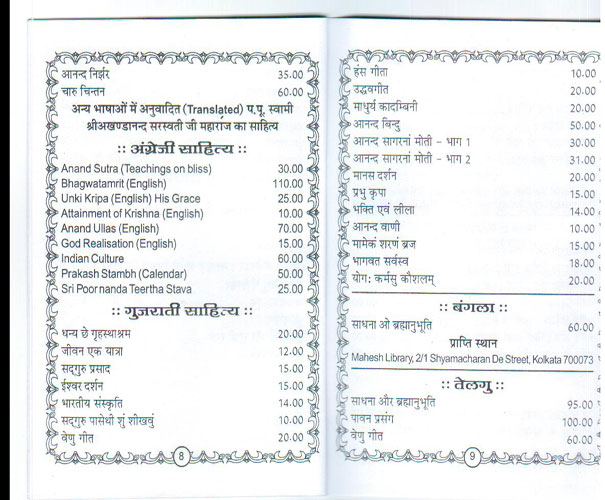 आनन्द निर्झर 35.00
चारु चिन्तन 60.00
अन्य भाषाओं में अनुवादित (Translated) प.पू. स्वामी
श्रीअखण्डानन्द सरस्वती जी महाराज का साहित्य
:: अंग्रेजी साहित्य ::
Anand Sutra (Teachings on bliss) 30.00
Bhagwatamrit (English) 110.00
Unki Kripa (English) His Grace 25.00
Attainment of Krishna (English) 10.00
Anand Ullas (English) 70.00
God Realisation (English) 15.00
Indian Culture 60.00
Prakash Stambh (Calendar) 50.00
Sri Poornanda Teertha Stava 25.00
:: गुजराती साहित्य ::
धन्य छे गृहस्थाश्रम 20.00
जीवन एक यात्रा 12.00
सद्गुरु प्रसाद 15.00
ईश्वर दर्शन 15.00
भारतीय संस्कृति 14.00
सद्गुरु पासेथी शुं शीखवुं 10.00
वेणु गीत 20.00
8
हंस गीता 10.00
उद्धवगीत 20.00
माधुर्य कादम्बिनी 20.00
आनन्द बिन्दु 50.00
आनन्द सागरनां मोती - भाग 1 30.00
आनन्द सागरनां मोती - भाग 2 31.00
मानस दर्शन 20.00
प्रभु कृपा 15.00
भक्ति एवं लीला 14.00
आनन्द वाणी 10.00
मामेकं शरणं ब्रज 15.00
भागवत सर्वस्व 18.00
योग: कर्मसु कौशलम् 20.00
:: बंगला ::
साधना ओ ब्रह्मानुभूति 60.00
प्राप्ति स्थान
Mahesh Library, 2/1 Shyamacharan De Street, Kolkata 700073
:: तेलगु ::
साधना और ब्रह्मानुभूति 95.00
पावन प्रसंग 100.00
वेणु गीत 60.00
9